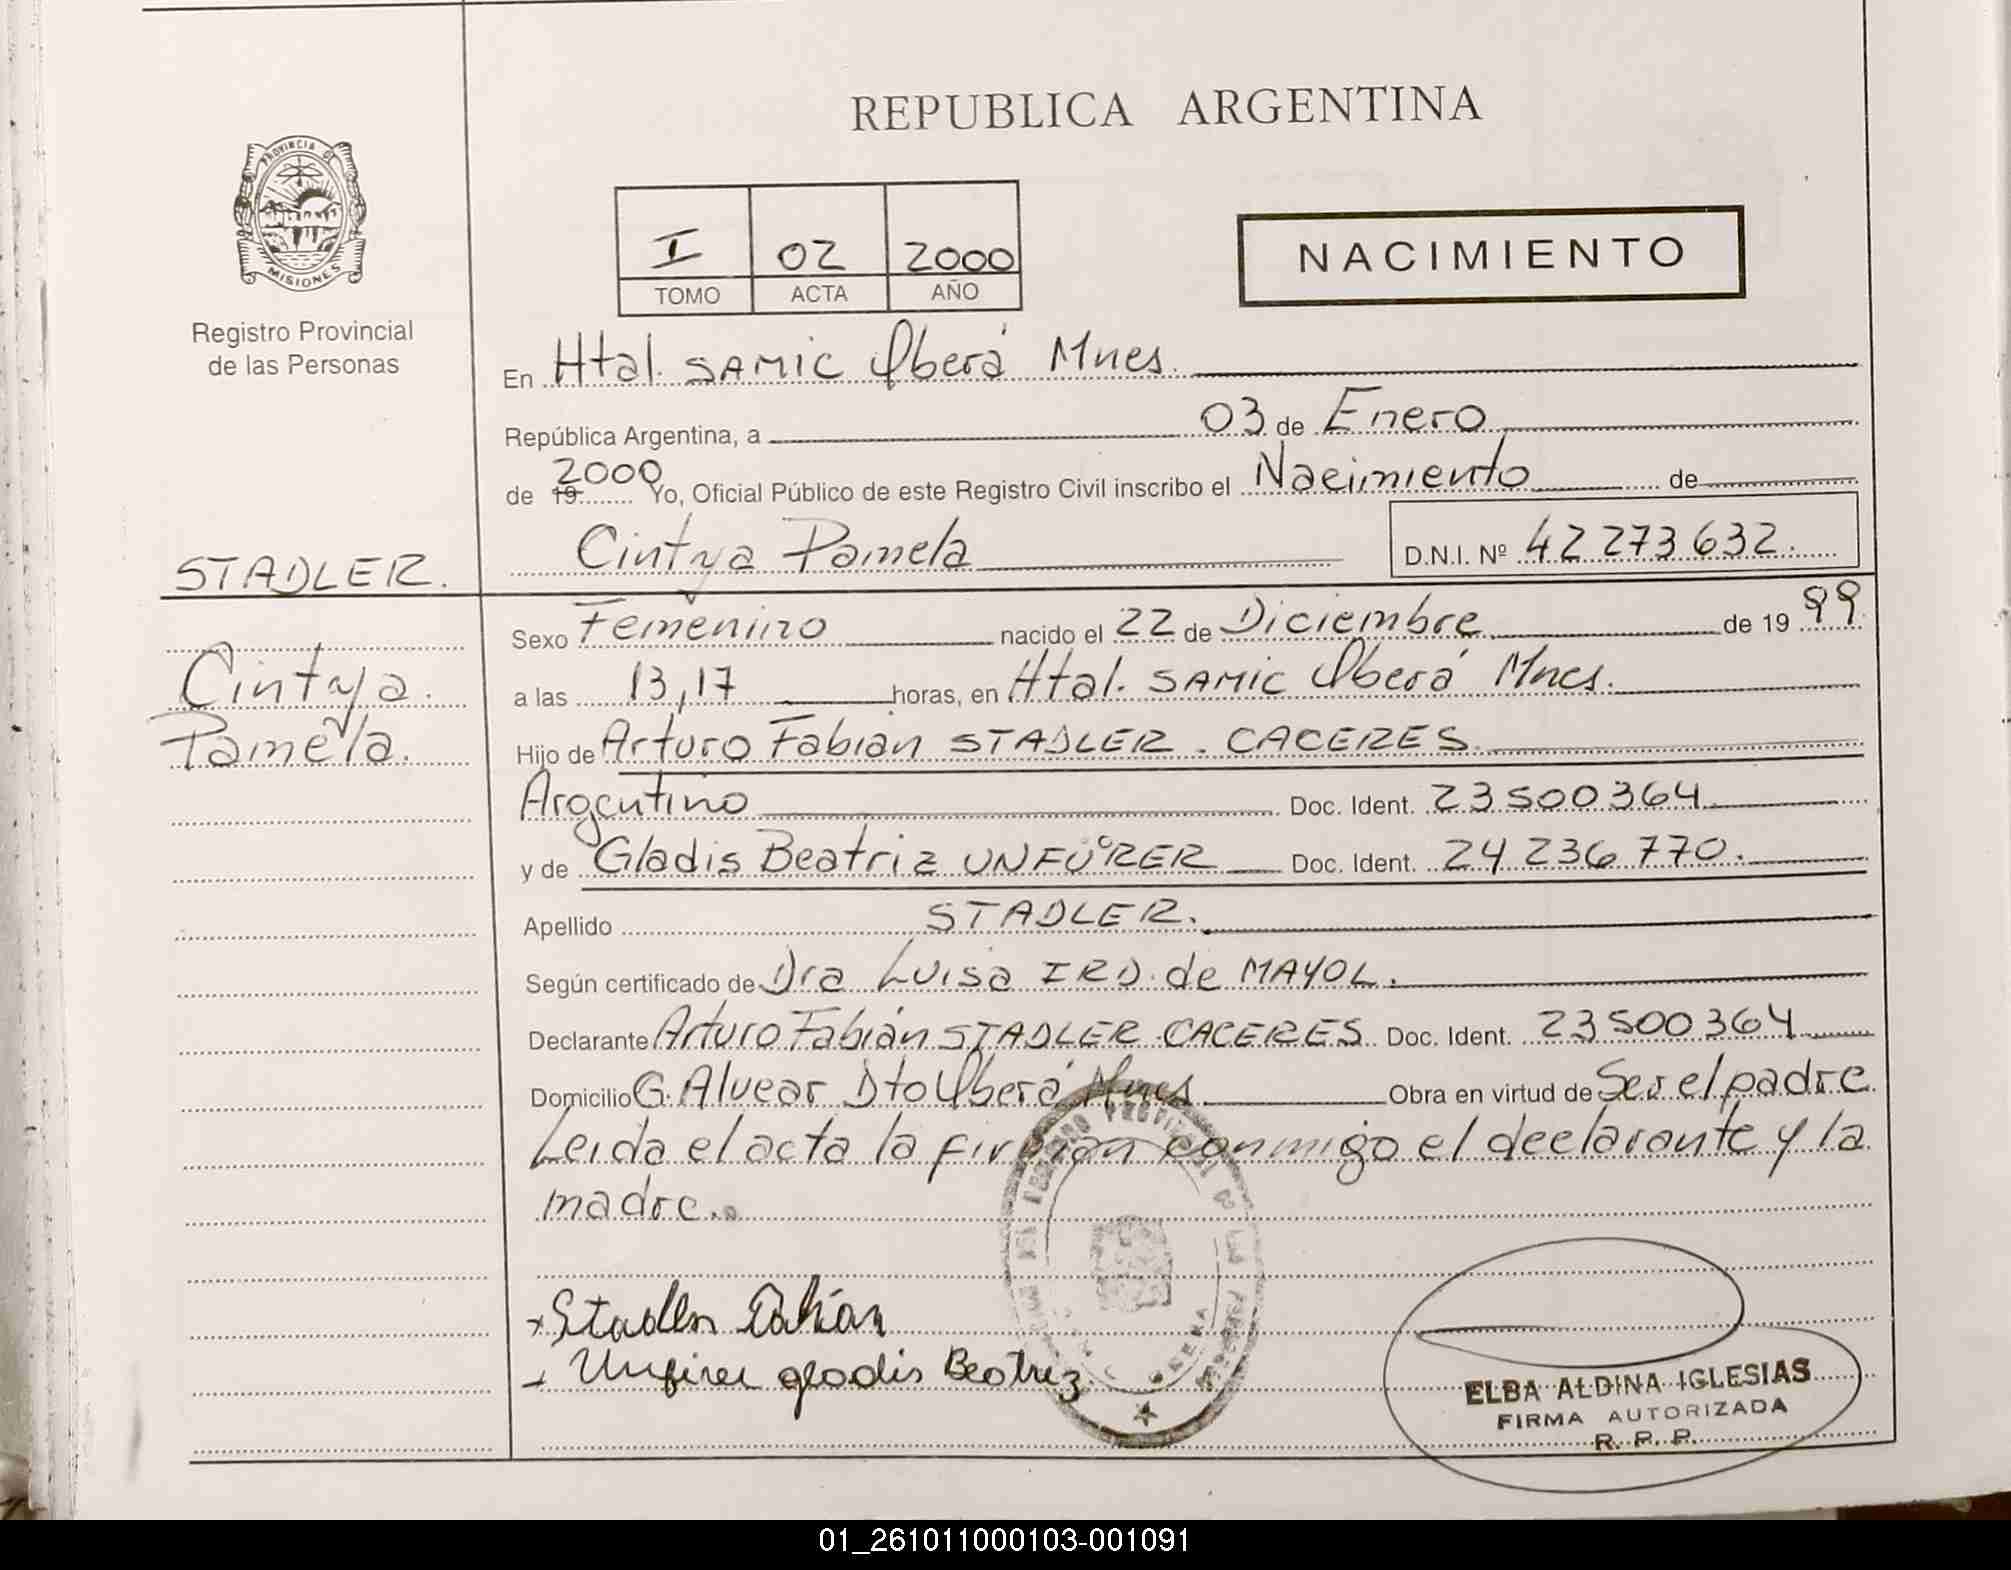 REPUBLICA ARGENTINA
PROVINCIA DE
MISIONES
Registro Provincial
de las Personas
I 02 2000
TOMO ACTA AÑO
NACIMIENTO
En Htal. SAMIC Oberá Mnes.
República Argentina, a 03 de Enero
de 19 2000 Yo, Oficial Público de este Registro Civil inscribo el Nacimiento de
Cintya Pamela D.N.I. Nº 42 273 632.
STADLER.
Cintya.
Pamela.
Sexo Femenino nacido el 22 de Diciembre de 19 99
a las 13,17 horas, en Htal. SAMIC Oberá Mnes.
Hijo de Arturo Fabian STADLER. CACERES
Argentino Doc. Ident. 23500364
y de Gladis Beatriz UNFÜRER Doc. Ident. 24 236 770.
Apellido STADLER.
Según certificado de Dra Luisa IRD. de MAYOL.
Declarante Arturo Fabián STADLER CACERES Doc. Ident. 23500364
Domicilio G. Alvear Dto Oberá Mnes Obra en virtud de Ser el padre.
Leida el acta la firman conmigo el declarante y la
madre.
Stadler Fabian
Unfirer gladis Beatriz
ELBA ALDINA IGLESIAS
FIRMA AUTORIZADA
R. P. P.
01_261011000103-001091